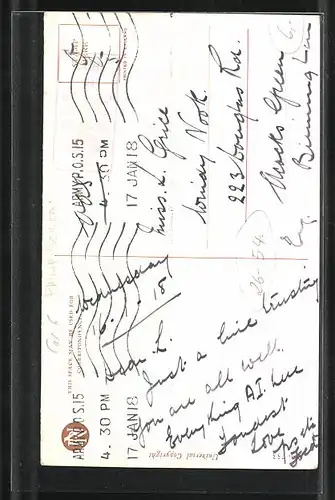 ARMY P.O.S.15
4. 30 PM
17 JAN 18
ARMY P.O.S.15
4. 30 PM
17 JAN 18
THIS SPACE MAY BE USED FOR
CORRESPONDENCE
Wednesday
16.1.18
Dear L.
Just a line trusting
you are all well.
Everything A.I. here
Fondest
Love
Miss. L. Grice
Windy Nook
223 Douglas Rd.
Acocks Green
Birmingham
Eng.
26-54
6.
Universal Copyright